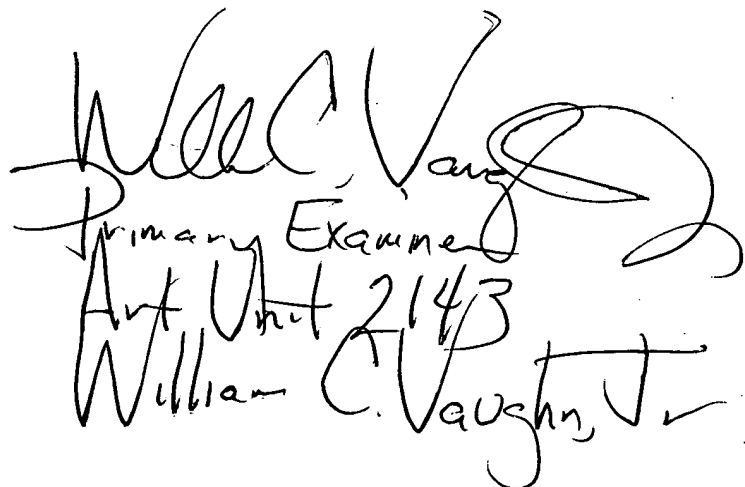 Will C. Vaugh
Primary Examiner
Art Unit 2143
William C. Vaughn, Jr